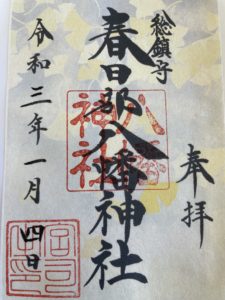 奉拝
総鎮守
春日部八幡神社
八幡神社
令和三年一月四日